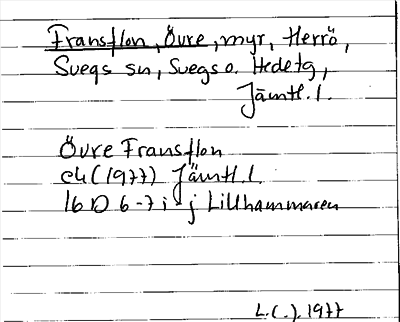 Fransflon, Övre, myr, Herrö,
Svegs sn, Svegs o. Hede tg,
Jämtl. l.
Övre Fransflon
ek (1977) Jämtl. l.
16D 6-7 i-j Lillhammaren
L.(.), 1977